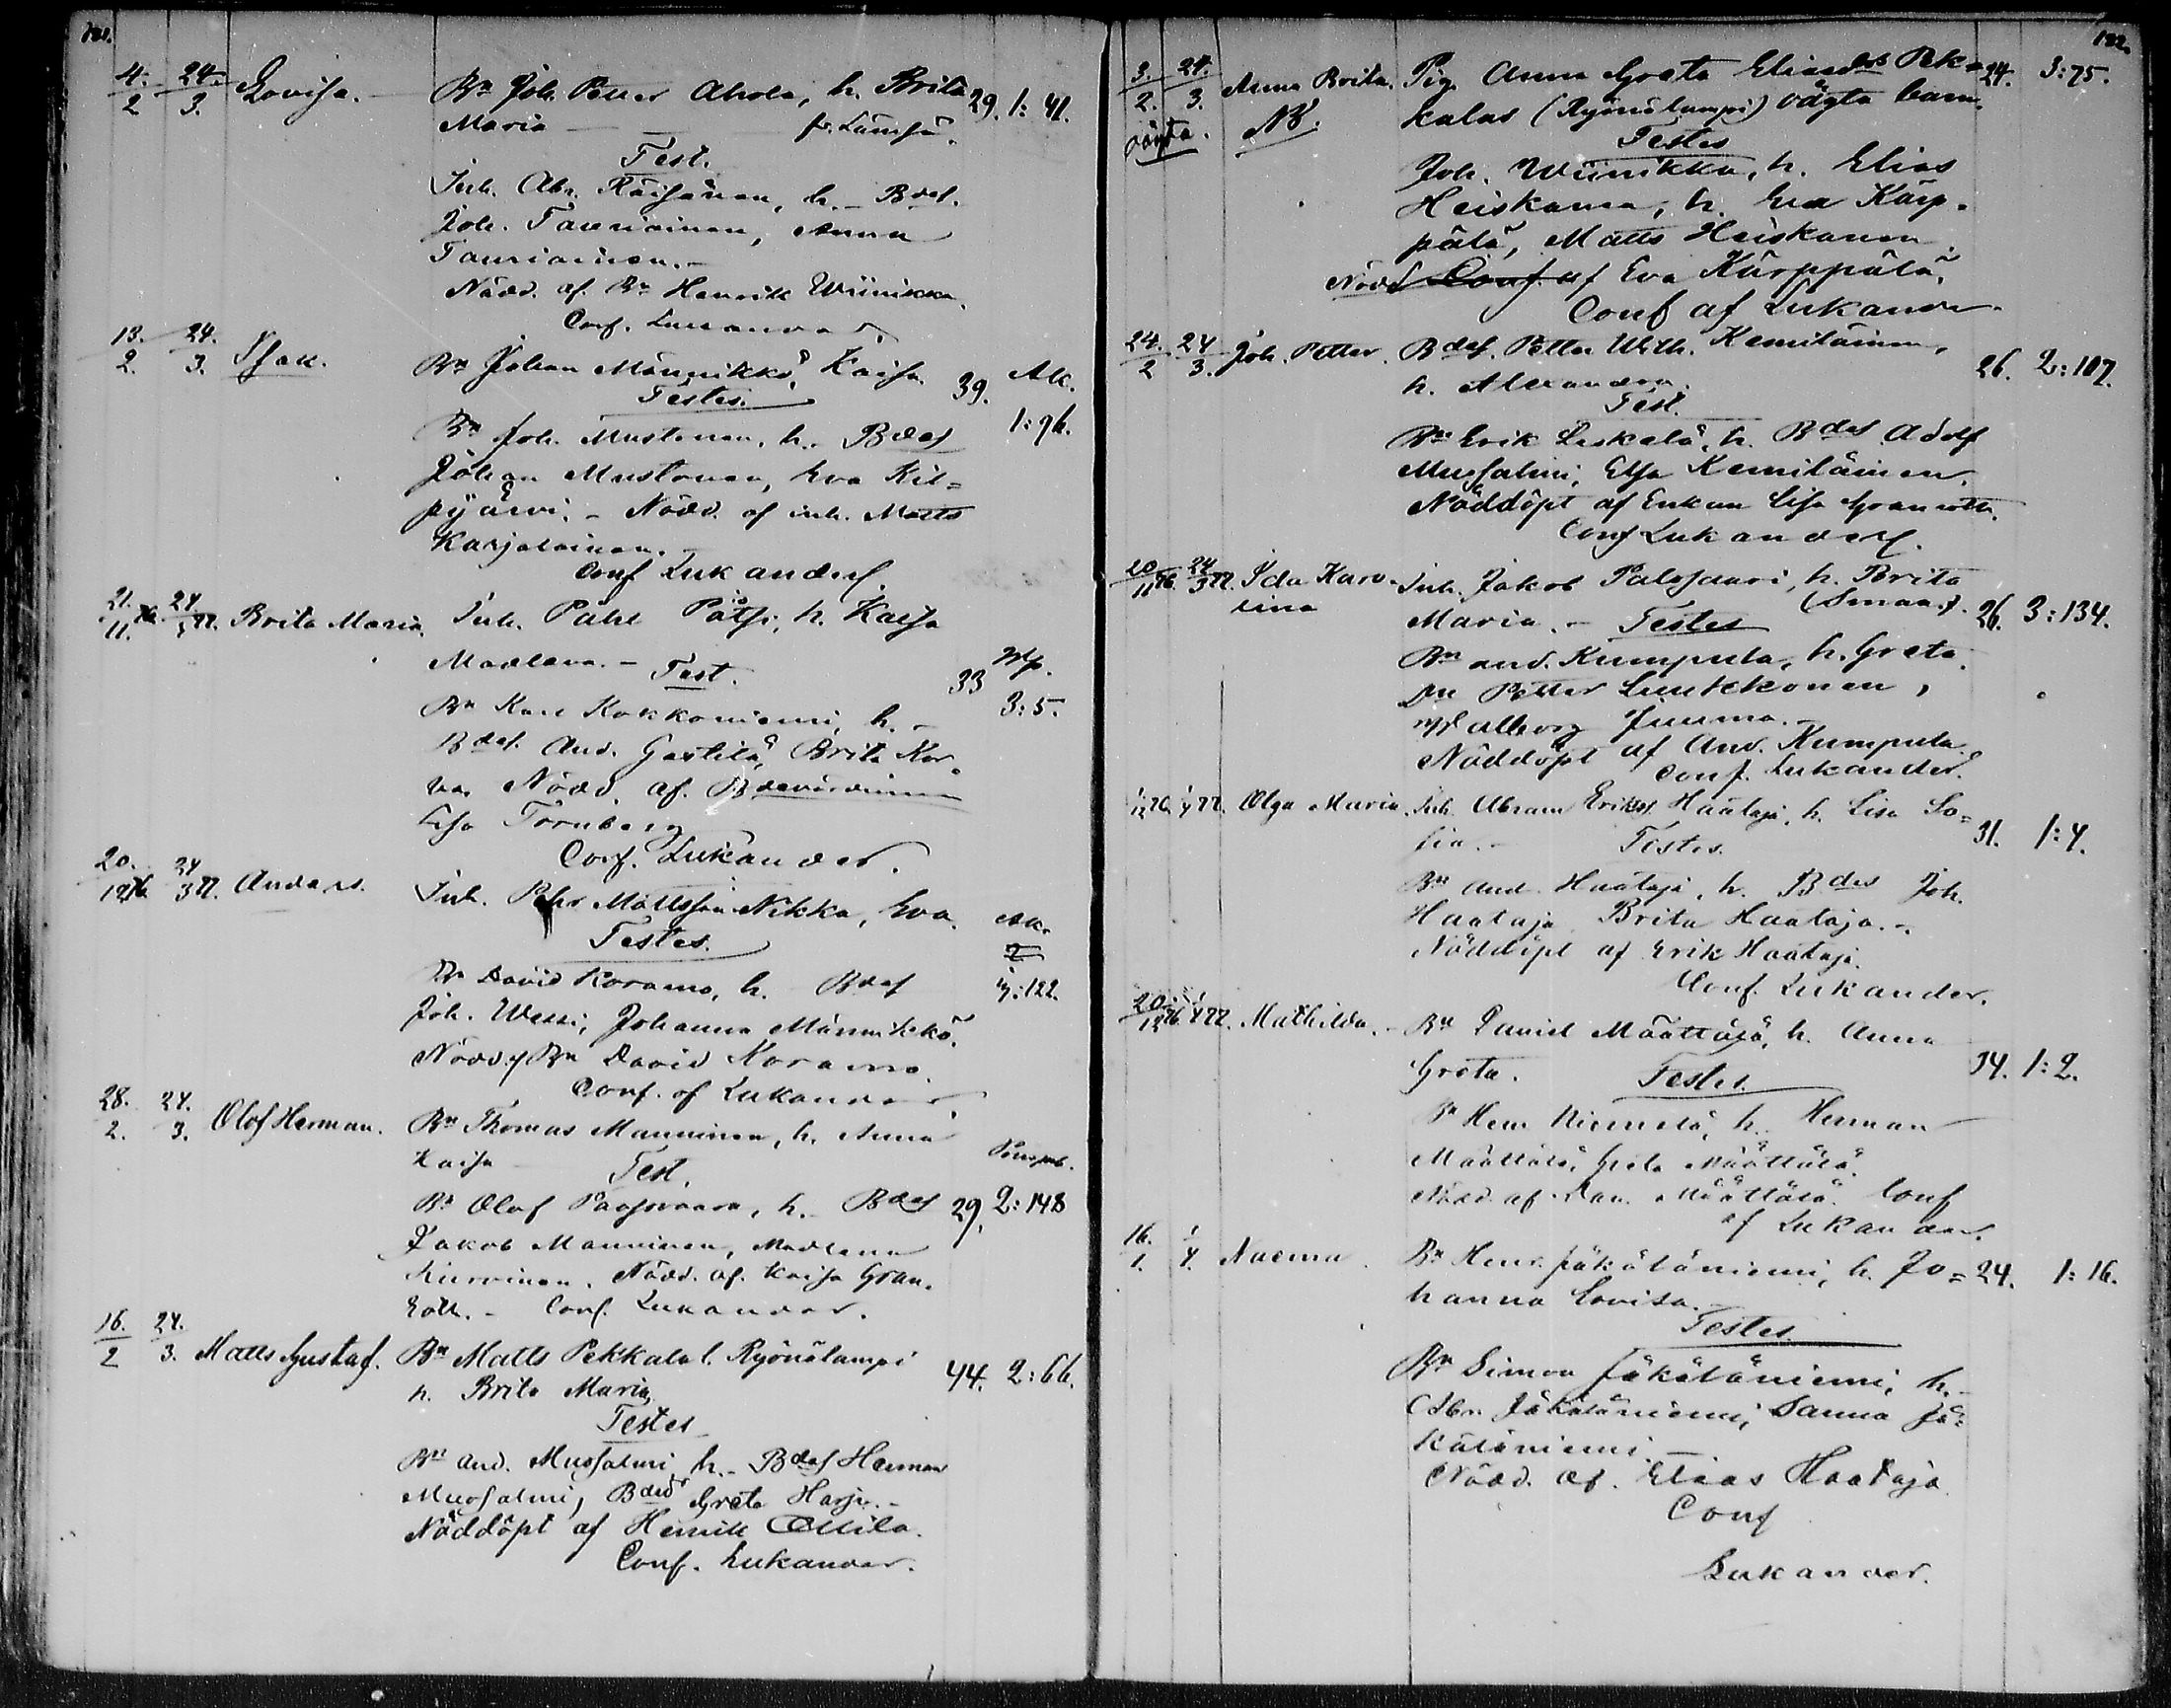 181.
4./2 24./3. Lovisa. Bn Joh. Petter Ahola, h. Brita 29. 1: 41.
Maria fr. Lämsä.
Test.
Inh. Abr. Räisänen, h. - Bdes.
Joh. Tauriainen, Anna
Tauriainen. -
Nödd. af Bn Henrik Wiinikka.
Conf. Lukander.
13./2. 24./3. Isak. Bn Johan Männikkö, Kaisa 39. Ak.
Testes. 1: 96.
Bn Joh. Mustonen, h. Bdes
Johan Mustonen, Eva Kil=
pijärvi. - Nödd. af inh. Matts
Karjalainen. -
Conf Lukander.
21./11. 76. 24/3 77. Brita Maria. Inh. Påhl Pätsi, h. Kaisa
Madlena. - Test. 33 3: 5.
Bn Karl Kokkoniemi, h. -
Bdes. And. Gastilä, Brita Kor-
va. Nödd. af Bdevärdinnan
Lisa Tornberg
Conf. Lukander.
20./12 76. 24/3 77. Anders. Inh. Pehr Mattsson Nikka, Eva. Ak.
Testes. 122.
Bn David Koramo, h. Bdes
Joh. Wessi, Johanna Männikkö.
Nödd. af Bn David Koramo.
Conf. af Lukander.
28./2. 24./3. Olof Herman. Bn Thomas Manninen, h. Anna
Kaisa Test.
Bn Olof Paasovaara, h. Bdes 29. 2: 148
Jakob Manninen, Madlena
Kurvinen. Nödd. af Kaisa Gran-
roth. - Conf. Lukander.
16./2 24./3. Matts Gustaf. Bn Matts Pekkala l. Ryönälampi 44. 2: 66.
h. Brita Maria,
Testes
Bn And. Mussalmi, h. - Bdes Herman
Mussalmi, Bdes Greta Harju. -
Nöddöpt af Henrik Ollila.
Conf. Lukander.
182.
3./2. 24./3. Anna Brita. Pig. Anna Greta Eliasdr Pek- 24. 3: 75.
oägta. NB. kalas (Ryönälampi) oägta barn.
Testes
Joh. Wiinikka, h. Elias
Heiskanen, h. Eva Kärp-
pälä, Matts Heiskanen.
Nödd Conf. af Eva Kärppälä.
Conf af Lukander.
24./2 24/3. Joh. Petter. Bdes. Petter Wilh. Kemiläinen, 26. 2: 107.
h. Alexandra.
Test.
Bn Erik Leskelä, h. Bdes Adolf
Mussalmi, Elsa Kemiläinen.
Nöddöpt af Enkan Lisa Granroth.
Conf Lukander.
20/11 76. 24/3 77. Ida Karo- Inh. Jakob Palosaari, h. Brita
lina Maria. - Testes 26. 3: 134.
Bn And. Kumpula, h. Greta.
Dr Petter Luukkonen,
Walborg Juuma. -
Nöddöpt af And. Kumpula.
Conf. Lukander.
1/12 76. 1/4 77. Olga Maria. Inh. Abram Eriks. Haataja, h. Lisa So= 31. 1: 4.
fia. - Testes.
Bn And. Haataja, h. Bdes Joh.
Haataja, Brita Haataja. -
Nöddöpt af Erik Haataja.
Conf. Lukander.
20./12 76. 1/4 77. Mathilda. - Bn Daniel Määttälä, h. Anna
Greta. Testes. 14. 1: 2.
Bn Henr. Niemelä, h. Herman
Määttälä, Greta Määttälä.
Nödd. af Dan. Määttälä. Conf
af Lukander.
16./1. 1/4. Naema. Bn Henr. Jäkäläniemi, h. Jo= 24. 1: 16.
hanna Lovisa. -
Testes.
Bn Simon Jäkäläniemi, h. -
Abr. Jäkäläniemi, Sanna Jä-
käläniemi. -
Nödd. af. Elias Haataja
Conf
Lukander.